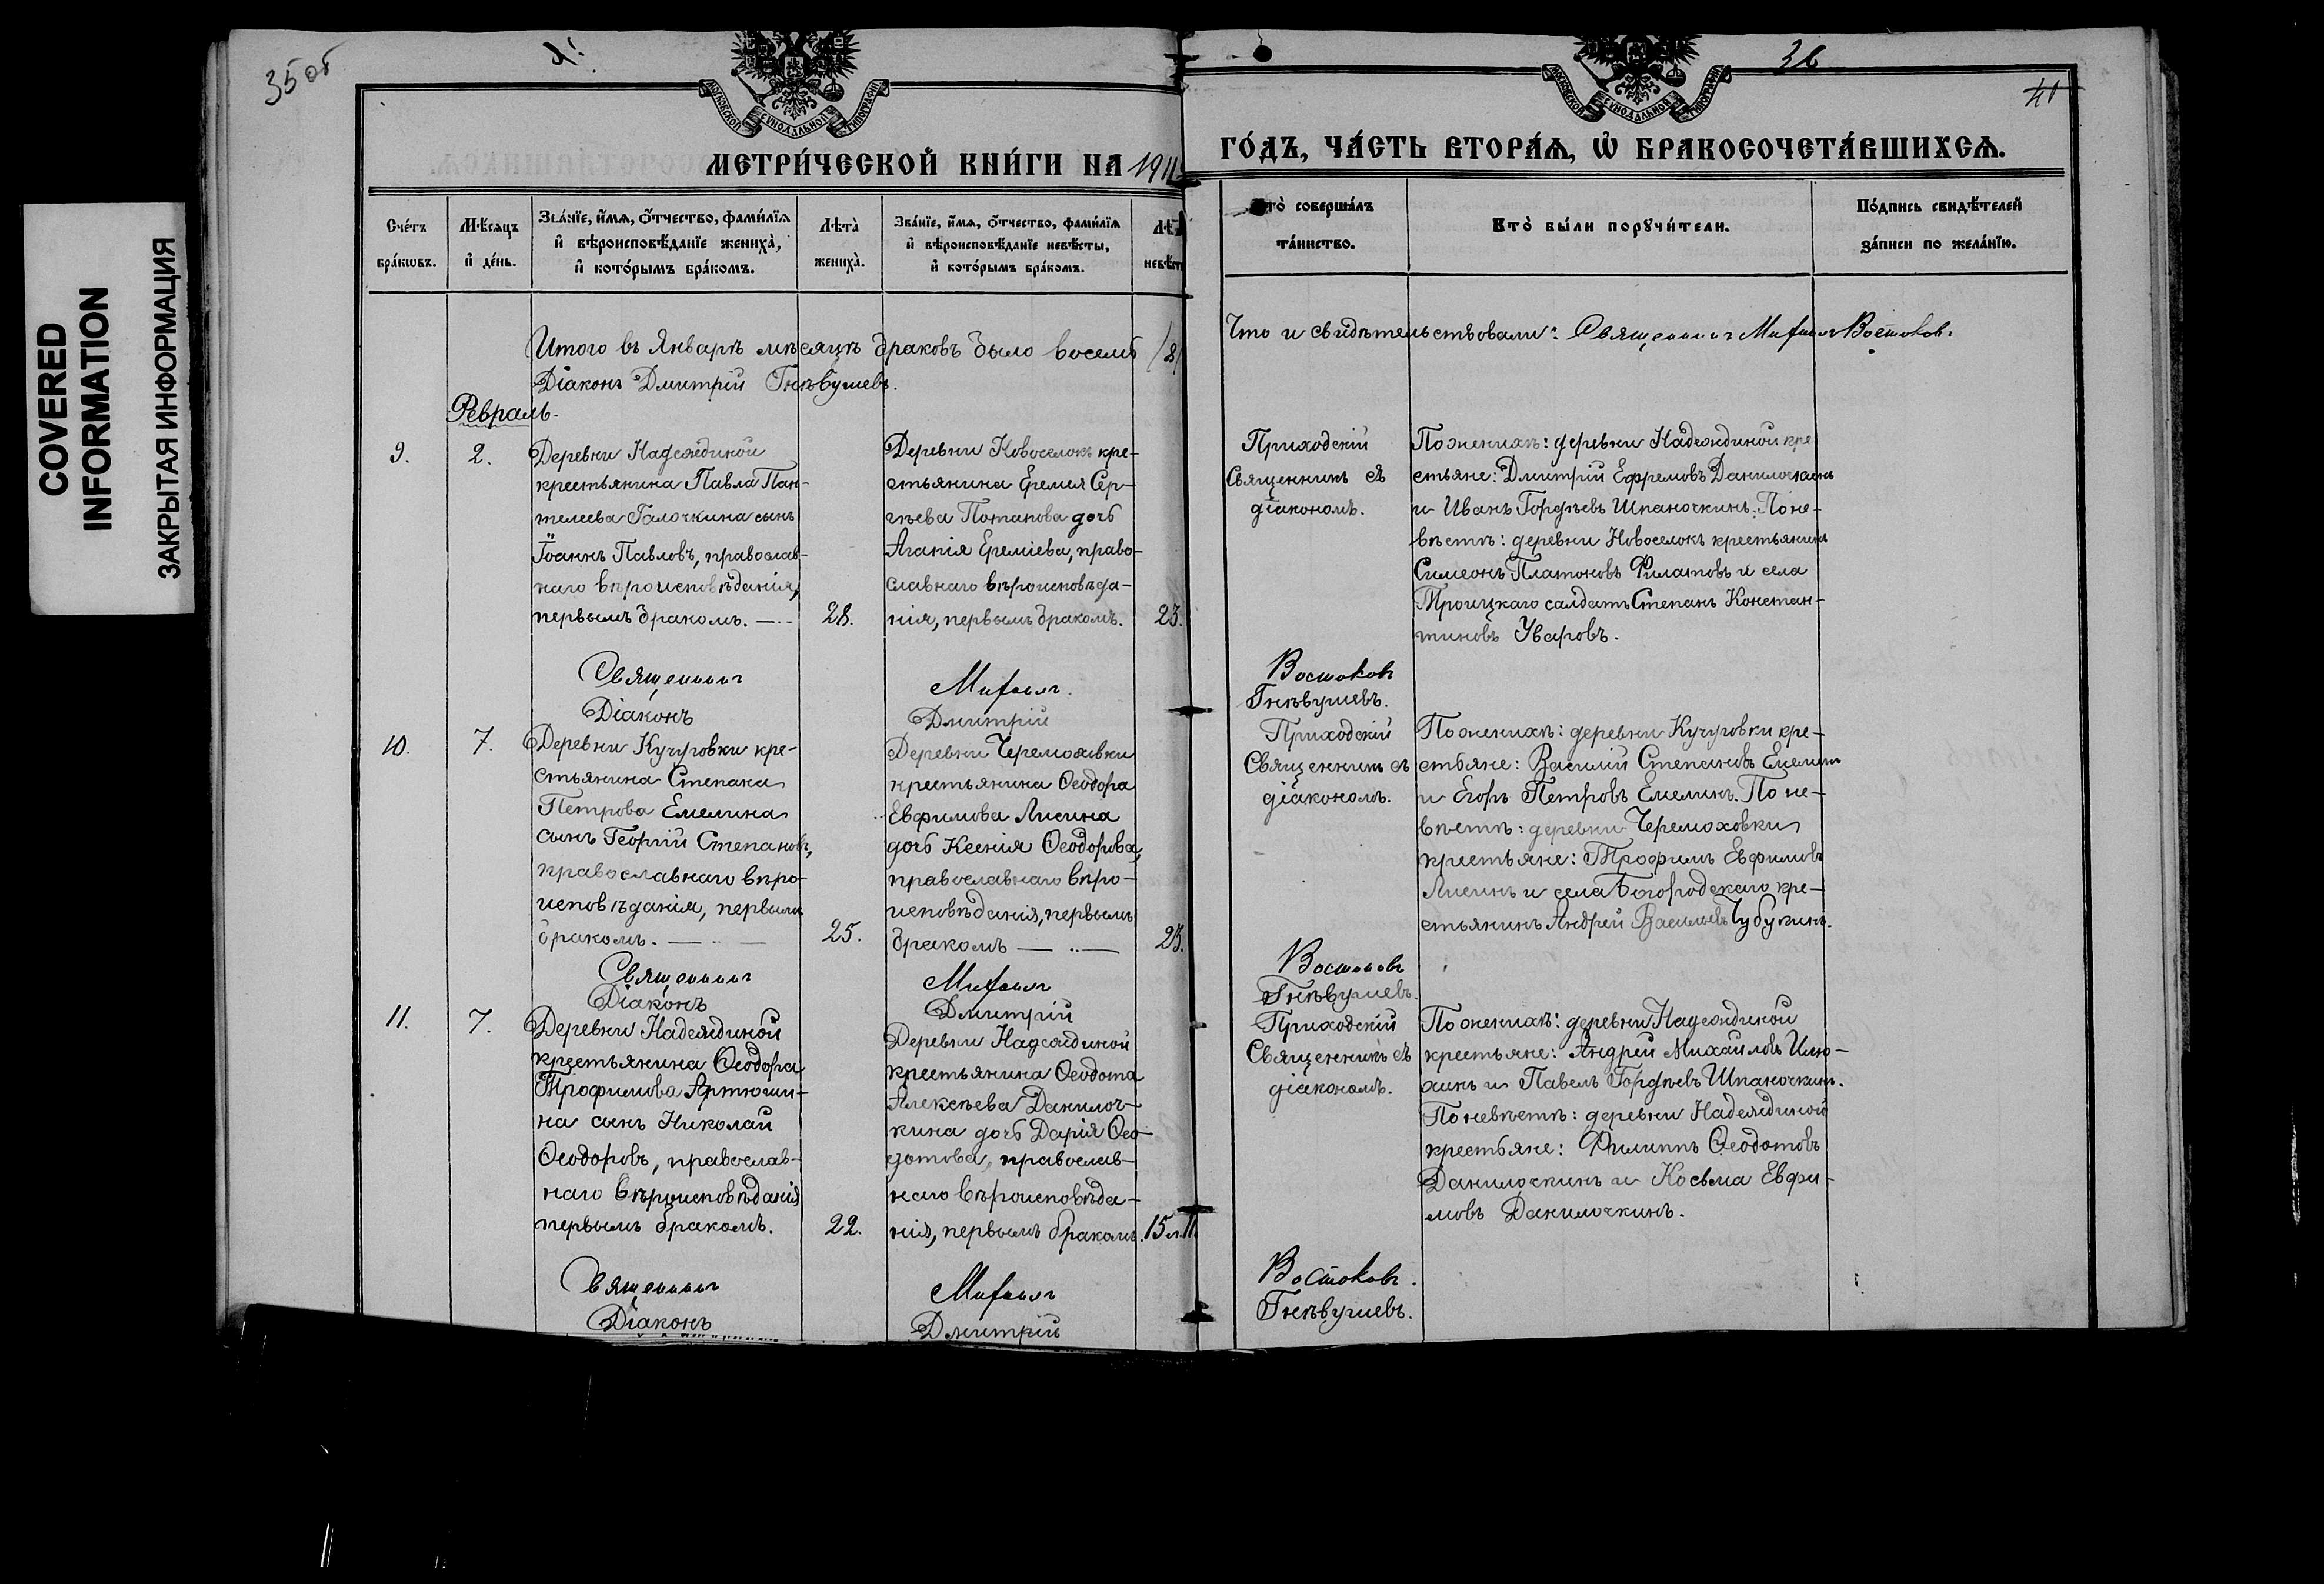 35 об
36
41
МОСКОВСКОЙ СУНОДАЛЬНОЙ ТИПОГРАФІИ
МОСКОВСКОЙ СУНОДАЛЬНОЙ ТИПОГРАФІИ
COVERED INFORMATION
ЗАКРЫТАЯ ИНФОРМАЦИЯ
МЕТРИ́ЧЕСКОЙ КНИ́ГИ НА 1911
ГО́ДЪ, ЧА́СТЬ ВТОРА́Ѧ, Ѽ БРАКОСОЧЕТА́ВШИХСѦ.
Сче́тъ бра́кѡвъ.
Мѣ́сяцъ и҆ де́нь.
Зва́нїе, и҆́мѧ, ѻ҆́тчество, фами́лїѧ и҆ вѣроисповѣ́данїе жениха̀, и҆ кото́рымъ бра́комъ.
Лѣта̀ жениха̀.
Зва́нїе, и҆́мѧ, ѻ҆́тчество, фами́лїѧ и҆ вѣроисповѣ́данїе невѣ́сты, и҆ кото́рымъ бра́комъ.
Кто̀ соверша́лъ та́инство.
Кто̀ бы́ли порꙋчи́тели.
По́дпись свидѣ́телей за́писи по жела́нїю.
Итого въ Январѣ мѣсяцѣ браковъ было восемь /8/
Діаконъ Дмитрій Гнѣвушевъ.
Что и свидѣтельствовали: Священникъ Михаилъ Востоковъ.
Февраль.
9.
2.
Деревни Надеждиной
крестьянина Павла Пан-
телеева Галочкина сынъ
Іоаннъ Павловъ, православ-
наго вѣроисповѣданія,
первымъ бракомъ. —
28.
Деревни Новоселокъ кре-
стьянина Еремея Сер-
гѣева Потапова дочь
Агапія Ереміева, право-
славнаго вѣроисповѣда-
нія, первымъ бракомъ.
23.
Приходскій
Священникъ съ
діакономъ.
По женихѣ: деревни Надеждиной кре-
стьяне: Дмитрій Ефремовъ Данилочкинъ
и Иванъ Гордѣевъ Шпаночкинъ. По не-
вѣстѣ: деревни Новоселокъ крестьянинъ
Симеонъ Платоновъ Филатовъ и села
Троицкаго салдатъ Степанъ Констан-
тиновъ Уваровъ.
Священникъ Михаилъ Востоковъ
Діаконъ Дмитрій Гнѣвушевъ.
10.
7.
Деревни Кучуровки кре-
стьянина Степана
Петрова Емелина
сынъ Георгій Степановъ,
православнаго вѣро-
исповѣданія, первымъ
бракомъ. —
25.
Деревни Черемоховки
крестьянина Ѳеодора
Евфимова Лисина
дочь Ксенія Ѳеодорова,
православнаго вѣро-
исповѣданія, первымъ
бракомъ —
23.
Приходскій
Священникъ съ
діакономъ.
По женихѣ: деревни Кучуровки кре-
стьяне: Василій Степановъ Емелинъ
и Егоръ Петровъ Емелинъ. По не-
вѣстѣ: деревни Черемоховки
крестьяне: Трофимъ Евфимовъ
Лисинъ и села Богородскаго кре-
стьянинъ Андрей Васильевъ Чубукинъ.
Священникъ Михаилъ Востоковъ
Діаконъ Дмитрій Гнѣвушевъ.
11.
7.
Деревни Надеждиной
крестьянина Ѳеодора
Трофимова Артюши-
на сынъ Николай
Ѳеодоровъ, православ-
наго вѣроисповѣданія
первымъ бракомъ.
22.
Деревни Надеждиной
крестьянина Ѳеодота
Алексѣева Данилоч-
кина дочь Дарія Ѳео-
дотова, православ-
наго вѣроисповѣда-
нія, первымъ бракомъ.
15 л. 11
Приходскій
Священникъ съ
діакономъ.
По женихѣ: деревни Надеждиной
крестьяне: Андрей Михайловъ Илю-
хинъ и Павелъ Гордѣевъ Шпаночкинъ.
По невѣстѣ: деревни Надеждиной
крестьяне: Филиппъ Ѳеодотовъ
Данилочкинъ и Косьма Евфи-
мовъ Данилочкинъ.
Священникъ Михаилъ Востоковъ.
Діаконъ Дмитрій Гнѣвушевъ.